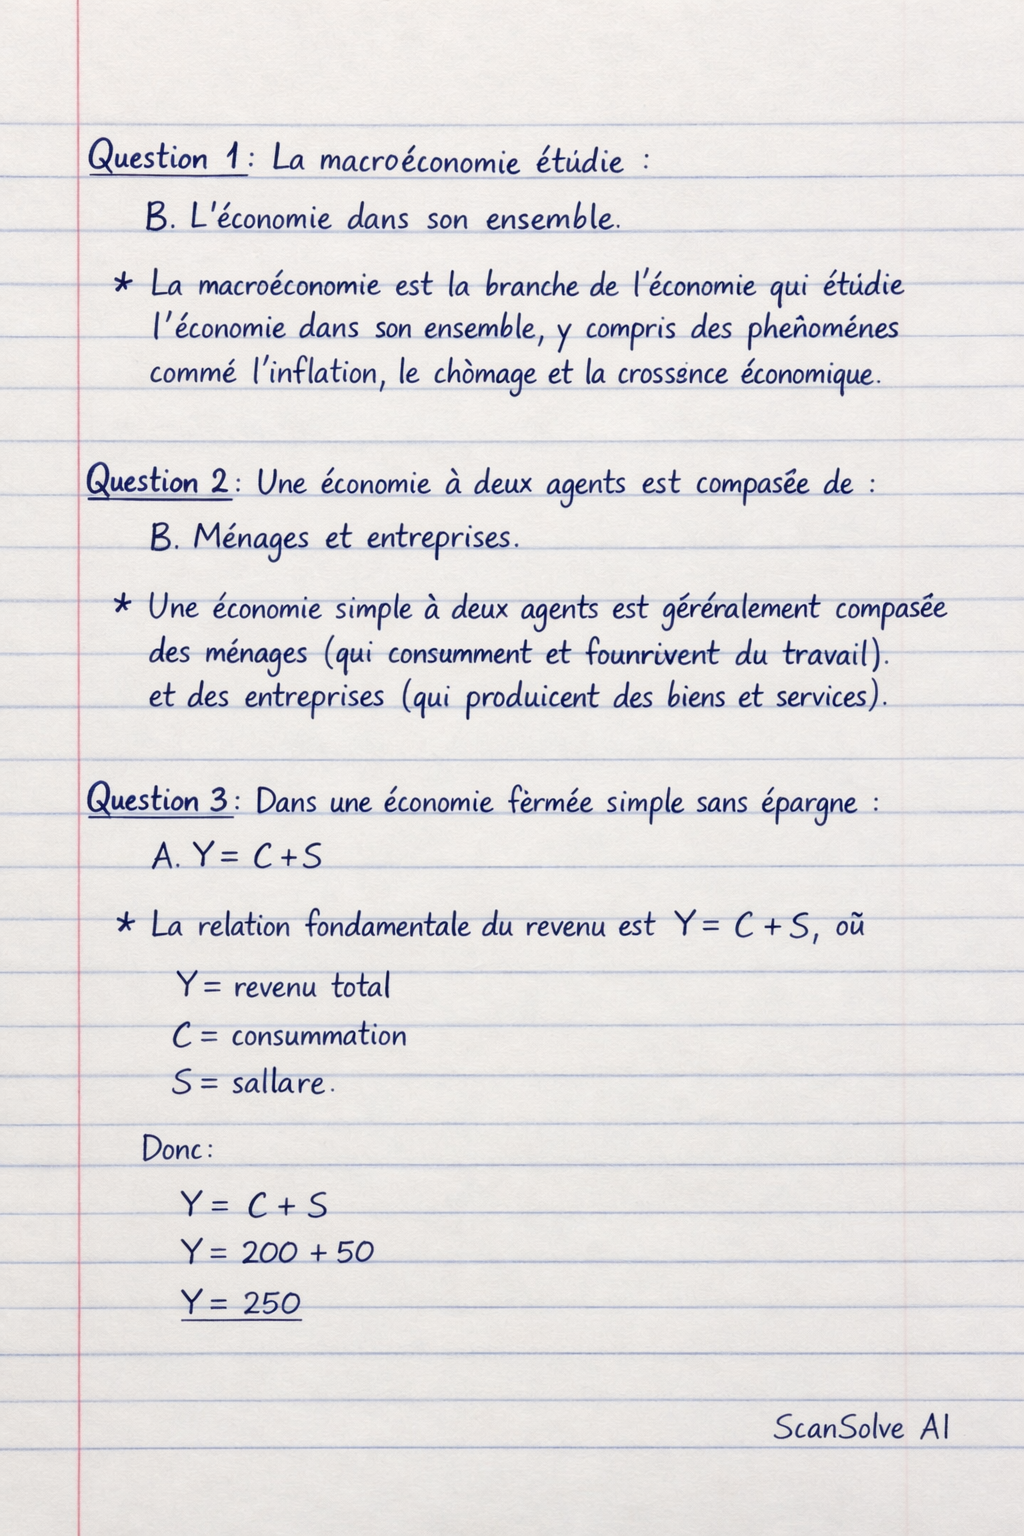 Question 1: La macroéconomie étúdie :
B. L'économie dans son ensemble.
* La macroéconomie est la branche de l'économie qui étúdie
l'économie dans son ensemble, y compris des pheñoménes
commé l'inflation, le chòmage et la crossènce économique.
Question 2: Une économie à deux agents est compasēe de :
B. Ménages et entreprises.
* Une économie simple à deux agents est géréralement compasēe
des ménages (qui consumment et founrivent du travail).
et des entreprises (qui produicent des biens et services).
Question 3: Dans une économie fèrmée simple sans épargne :
A. Y = C + S
* La relation fondamentale du revenu est Y = C + S, oũ
Y = revenu total
C = consummation
S = sallare.
Donc:
Y = C + S
Y = 200 + 50
Y = 250
ScanSolve AI